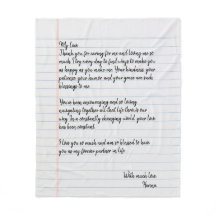 My love
Thank you for caring for me and loving me so
much. I try every day to find ways to make you
as happy as you make me. Your kindness, your
patience, your humor and your grace are such
blessings to me.
You've been encouraging and so loving
navigating together all that life throws in our
way. In a constantly changing world your love
has been constant.
I love you so much and am so blessed to have
you as my forever partner in life.
With much love